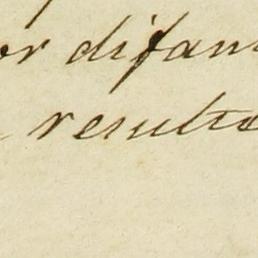 or difam
resulto